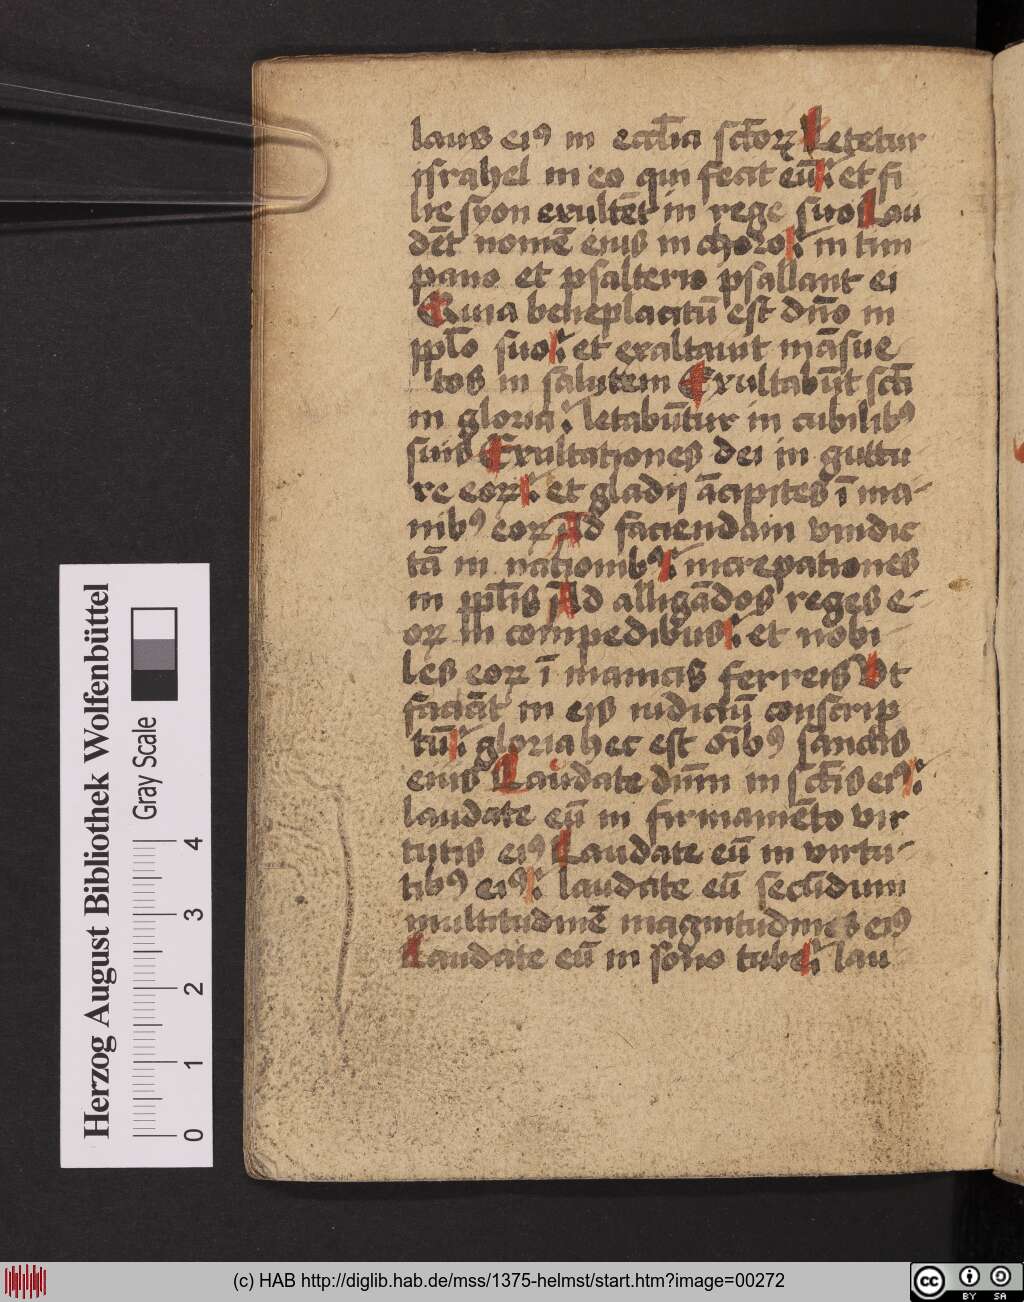 laus eiꝰ in eccl̄ia sc̄toꝝ Letetur
israhel in eo qui fecit eū et fi
lie syon exultēt in rege suo Lau
dēt nomē eius in choro in tim
pano et psalterio psallant ei
Quia beneplacitū est dn̄o in
ppl̄o suo et exaltauit māsue
tos in salutem Exultabūt sc̄ti
in gloria letabūtur in cubilibꝰ
suis Exultationes dei in guttu
re eoꝝ et gladij ācipites ī ma-
nibꝰ eoꝝ Ad faciendam vindic
tā in nationibꝰ increpationes
in ppl̄is Ad alligādos reges e-
oꝝ in compedibus et nobi-
les eoꝝ ī manicis ferreis Vt
faciāt in eis iudiciū conscrip
tū gloria hec est oībꝰ sanctis
eius Laudate dūm in sc̄tis eiꝰ
laudate eū in firmamēto vir
tutis eiꝰ Laudate eū in virtu-
tibꝰ eiꝰ laudate eū secūdum
multitudinē magnitudines eiꝰ
Laudate eū in sono tube lau
Herzog August Bibliothek Wolfenbüttel
Gray Scale
0 1 2 3 4
(c) HAB http://diglib.hab.de/mss/1375-helmst/start.htm?image=00272
cc BY SA